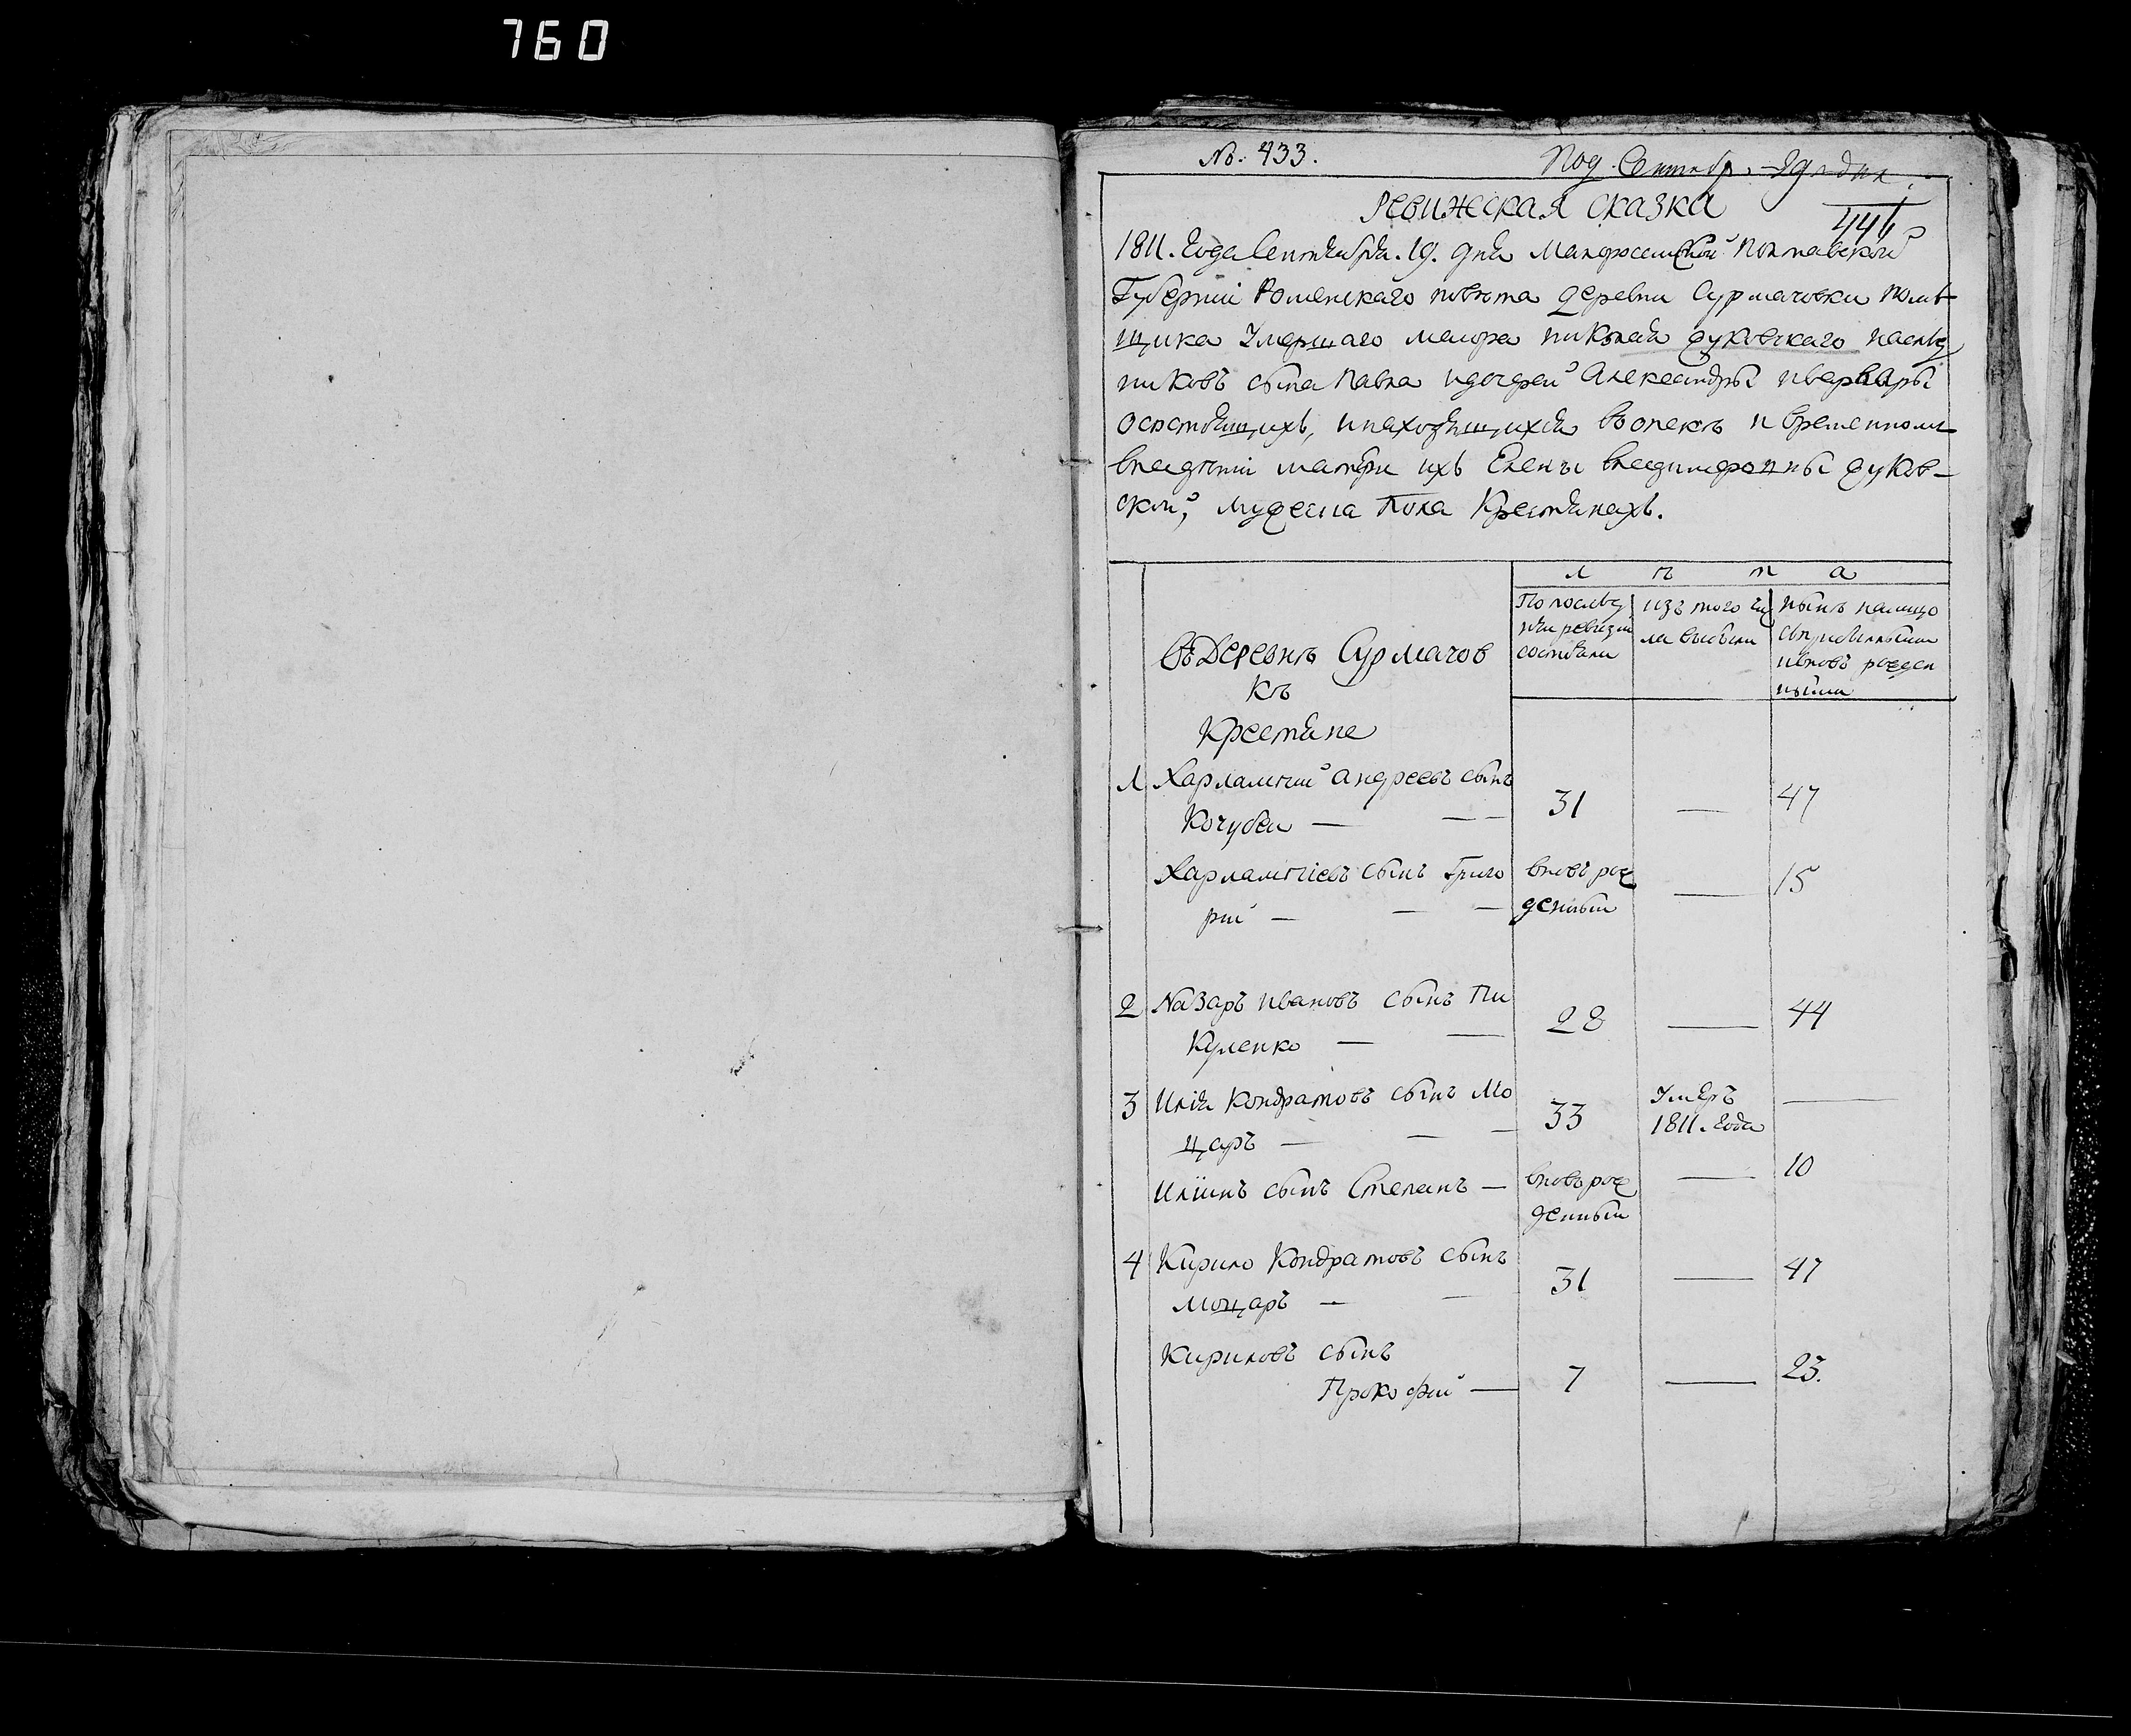 760
№. 433.
Под. Сентябр. 29 дня.
446
РЕВИЖСКАЯ СКАЗКА
1811. года Сентября. 19. дня Малороссійской Полтавской
Губерніи Роменскаго повѣта деревни Сурмачовки помѣ-
щика Умершаго маіора николая луковскаго наслѣд
никовъ сына Павла идочерей Александры иварвары
осостоящихъ, инаходящихся вопекѣ и временномъ
владѣніи матери ихъ Елены владимеровны луков-
ской, мужеска Пола Крестянахъ.
Л ѣ т а
въ Деревнѣ Сурмачов
кѣ
Крестяне
По послѣд
нѣи ревизіи
состояли
изъ того чи
ла выбыли
нынѣ налицо
сприбылыми
ивновь рожден
ными
1 Харлампий андреевъ сынъ
Кочубеи — — 31 — 47
Харлампіевъ сынъ Григо вновъ рож — 15
рий — — — денный
2 Назаръ ивановъ сынъ Пи
Куленко — — 28 — 44
3 Илія Кондратовъ сынъ Мо
царъ — — — 33 Умеръ 1811. года —
Иліинъ сынъ Степанъ — вновърож — 10
денный
4 Кирило Кондратовъ сынъ
Моцаръ — — 31 — 47
Кириловъ сынъ
Прокофий — 7 — 23.